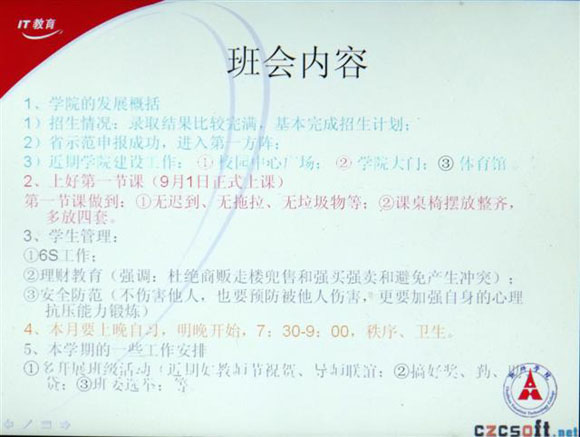 IT教育
班会内容
1、学院的发展概括
1）招生情况：录取结果比较完满，基本完成招生计划；
2）省示范申报成功，进入第一方阵；
3）近期学院建设工作：①校园中心广场；②学院大门；③体育馆。
2、上好第一节课（9月1日正式上课）
第一节课做到：①无迟到、无拖拉、无垃圾物等；②课桌椅摆放整齐，
多放四套。
3、学生管理：
①6S工作；
②理财教育（强调：杜绝商贩走楼兜售和强买强卖和避免产生冲突）；
③安全防范（不伤害他人，也要预防被他人伤害，更要加强自身的心理
抗压能力锻炼）
4、本月要上晚自习，明晚开始，7：30-9；00，秩序、卫生。
5、本学期的一些工作安排
①多开展班级活动（近期好教师节祝贺、导师联谊；②搞好奖、勤、
贷；③班委选举；等。
czcsoft.net